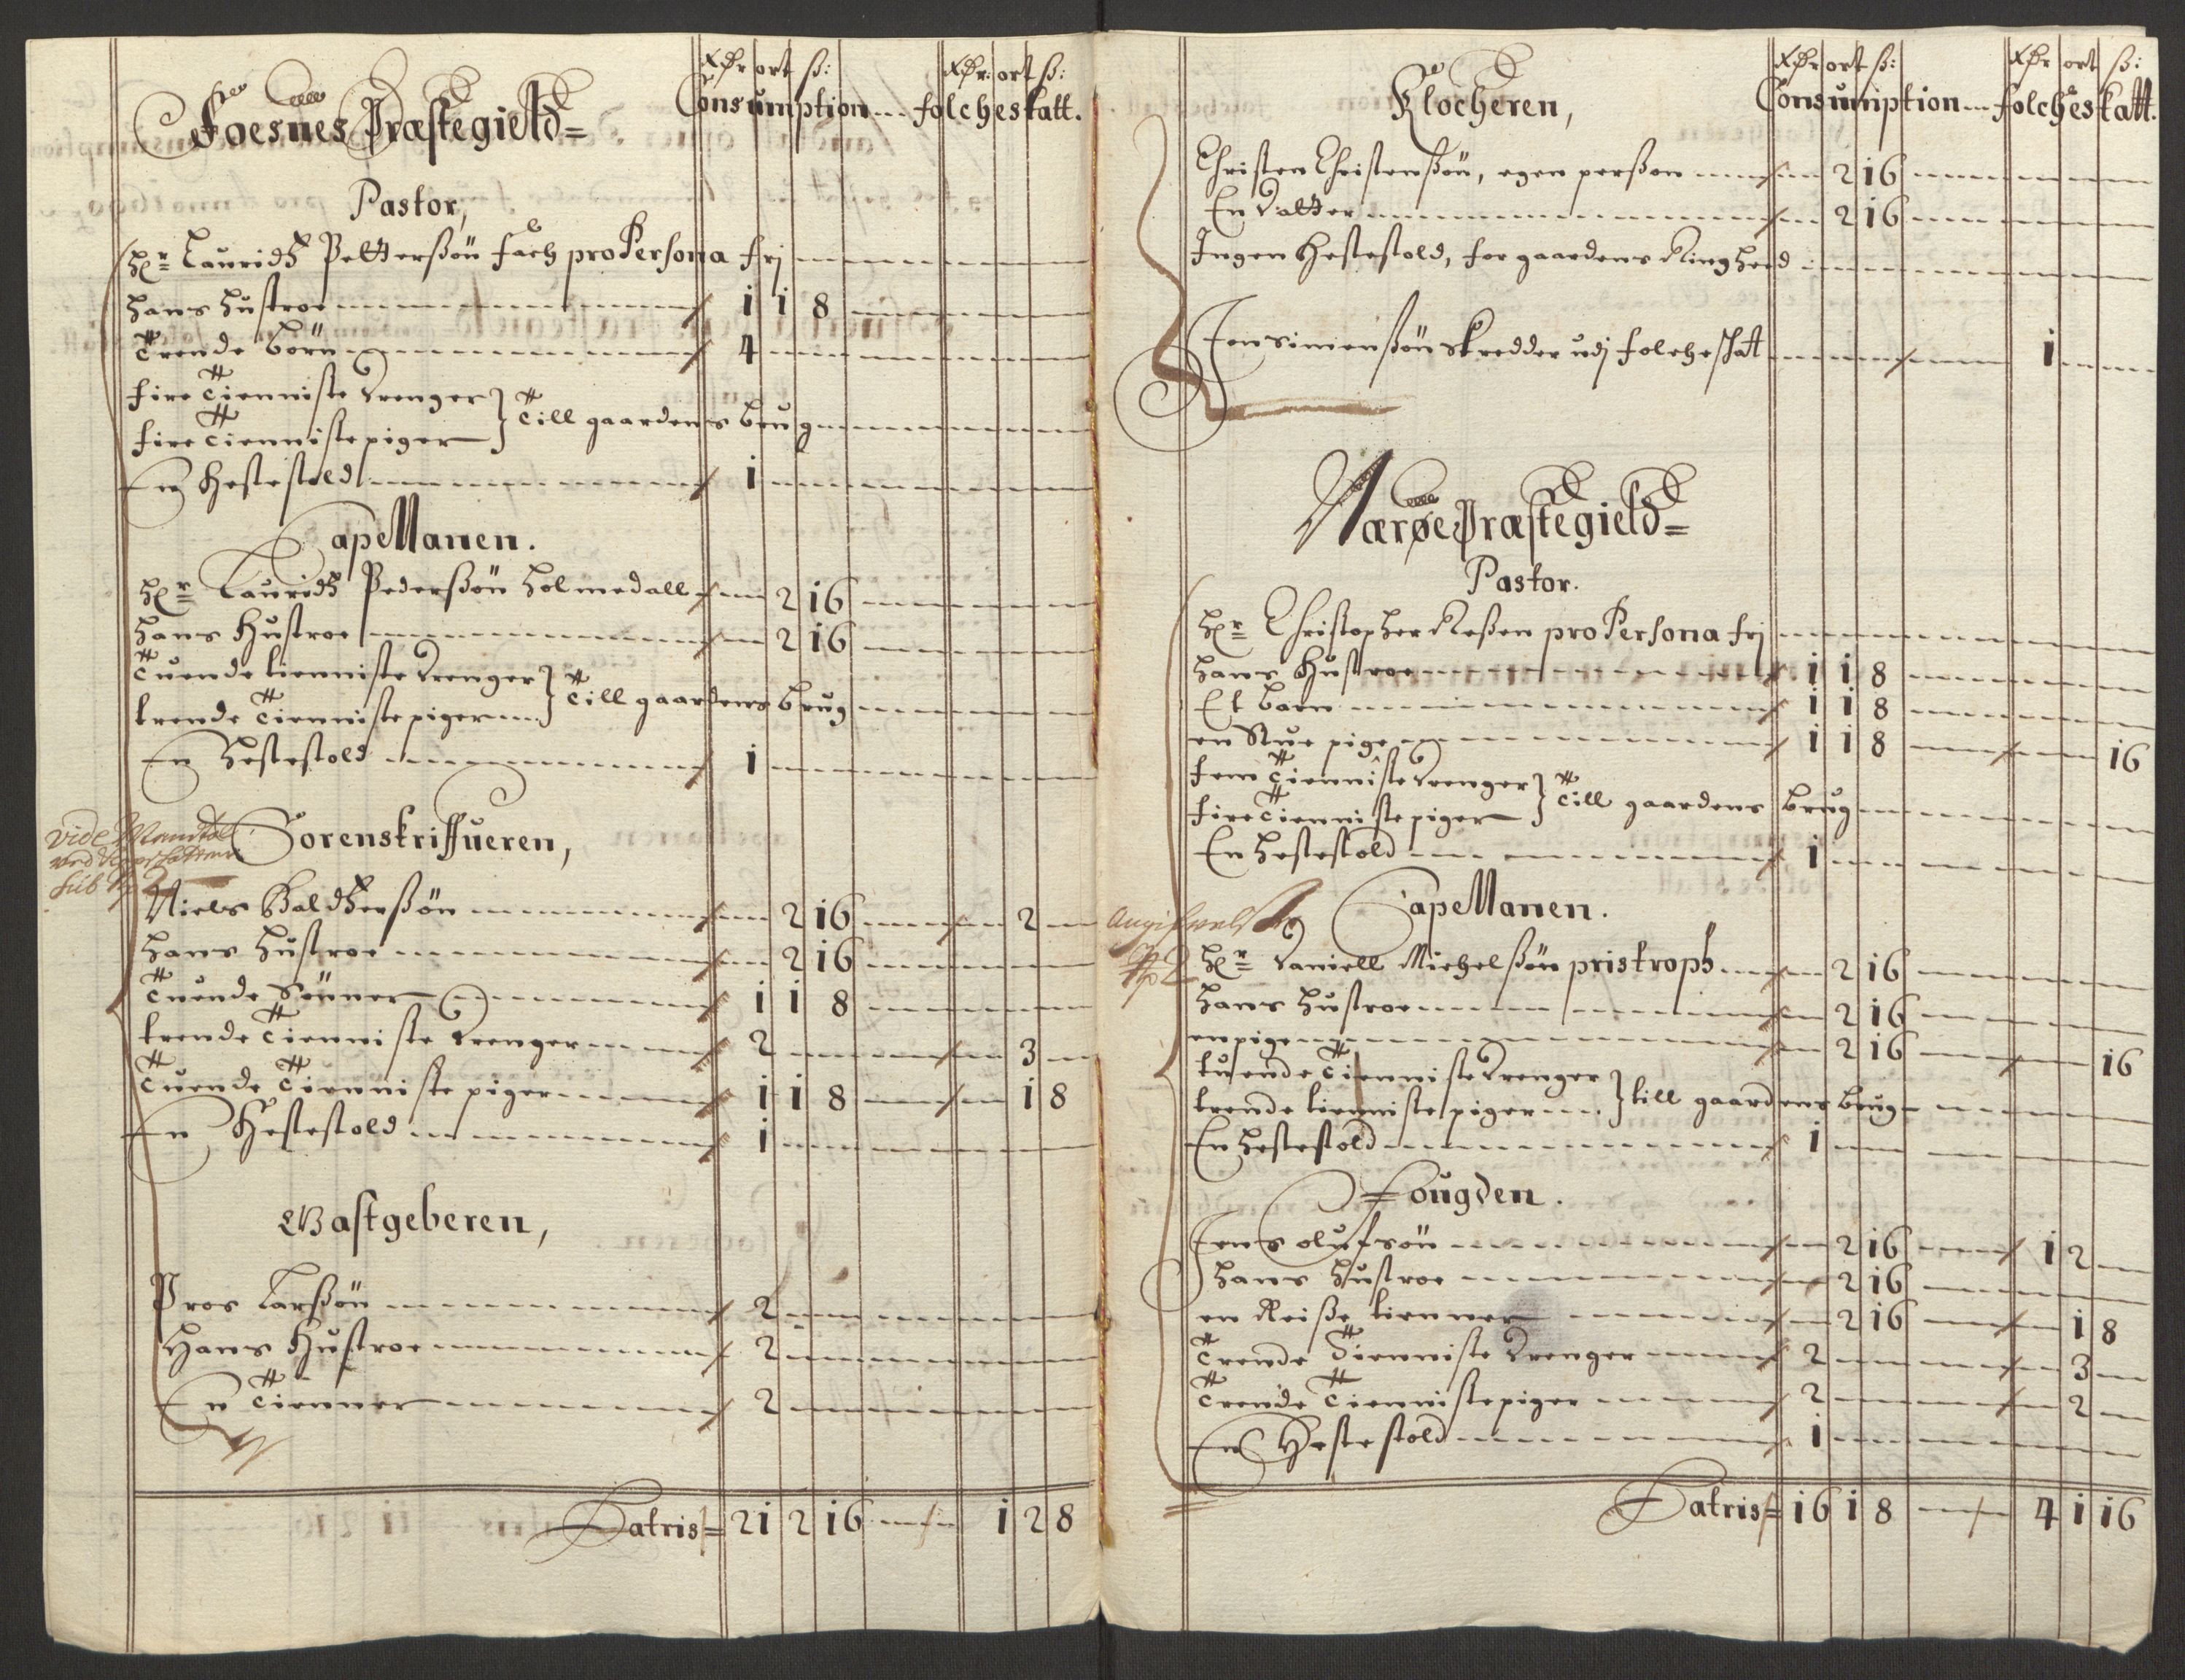 Rdr ort ß: Rdr: ort ß:
Foesnes Præstegield= Consumption... folcheskatt.
Pastor,
Hr= Lauridtz Pettersøn fach pro Persona frj
Hans Hustroe 1 1 8
Trende börn 4
fire Tienniste drenger
fire Tienniste piger } Till gaardens brug
En Hestestald 1
Capellanen.
Hr= Lauridtz Pederßön Holmedall 2 16
Hans Hustroe 2 16
Tuende tienniste drenger
trende Tienniste piger } Till gaardens brug
En Hestestold 1
Vide Mandtal
sub No 2
Sorenskriffueren,
Niels Baldtzerßön 2 16 2
Hans Hustroe 2 16
Tuende Sönner 1 1 8
trende Tienniste drenger 2 3
Tuende Tienniste piger 1 1 8 1 8
En Hestestold 1
Gastgeberen,
Pros Larßön 2
Hans Hustroe 2
En Tienner 2
Latris= 21 2 16 1 2 8
Rdr ort ß: Rdr ort ß:
Klocheren, Consumption... folcheskatt.
Christen Christenßön, egen perßon 2 16
En datter 2 16
Ingen Hestestold, for gaardens Ringhed
Jon Simenßön Skredder udj folcheskatt 1
Nærøe Præstegield=
Pastor.
Hr= Christopher Reßen pro Persona frj
Hans Hustroe 1 1 8
Et barn 1 1 8
en Stue pige 1 1 8 16
fem Tienniste drenger
fire Tienniste piger } Till gaardens brug
En Hestestold 1
Capellanen.
No 2
Hr= Daniell Michelßön pristroph 2 16
Hans Hustroe 2 16
en pige 2 16 16
tuende Tienniste drenger
trende tienniste piger } till gaardens brug
En Hestestold 1
Fougden.
Jens olufsön 2 16 1 2
Hans Hustroe 2 16
en Reiße tienner 2 16 1 8
Trende Tienniste drenger 2 3
Trende Tienniste piger 2 2
En Hestestold 1
Latris= 16 1 8 4 1 16